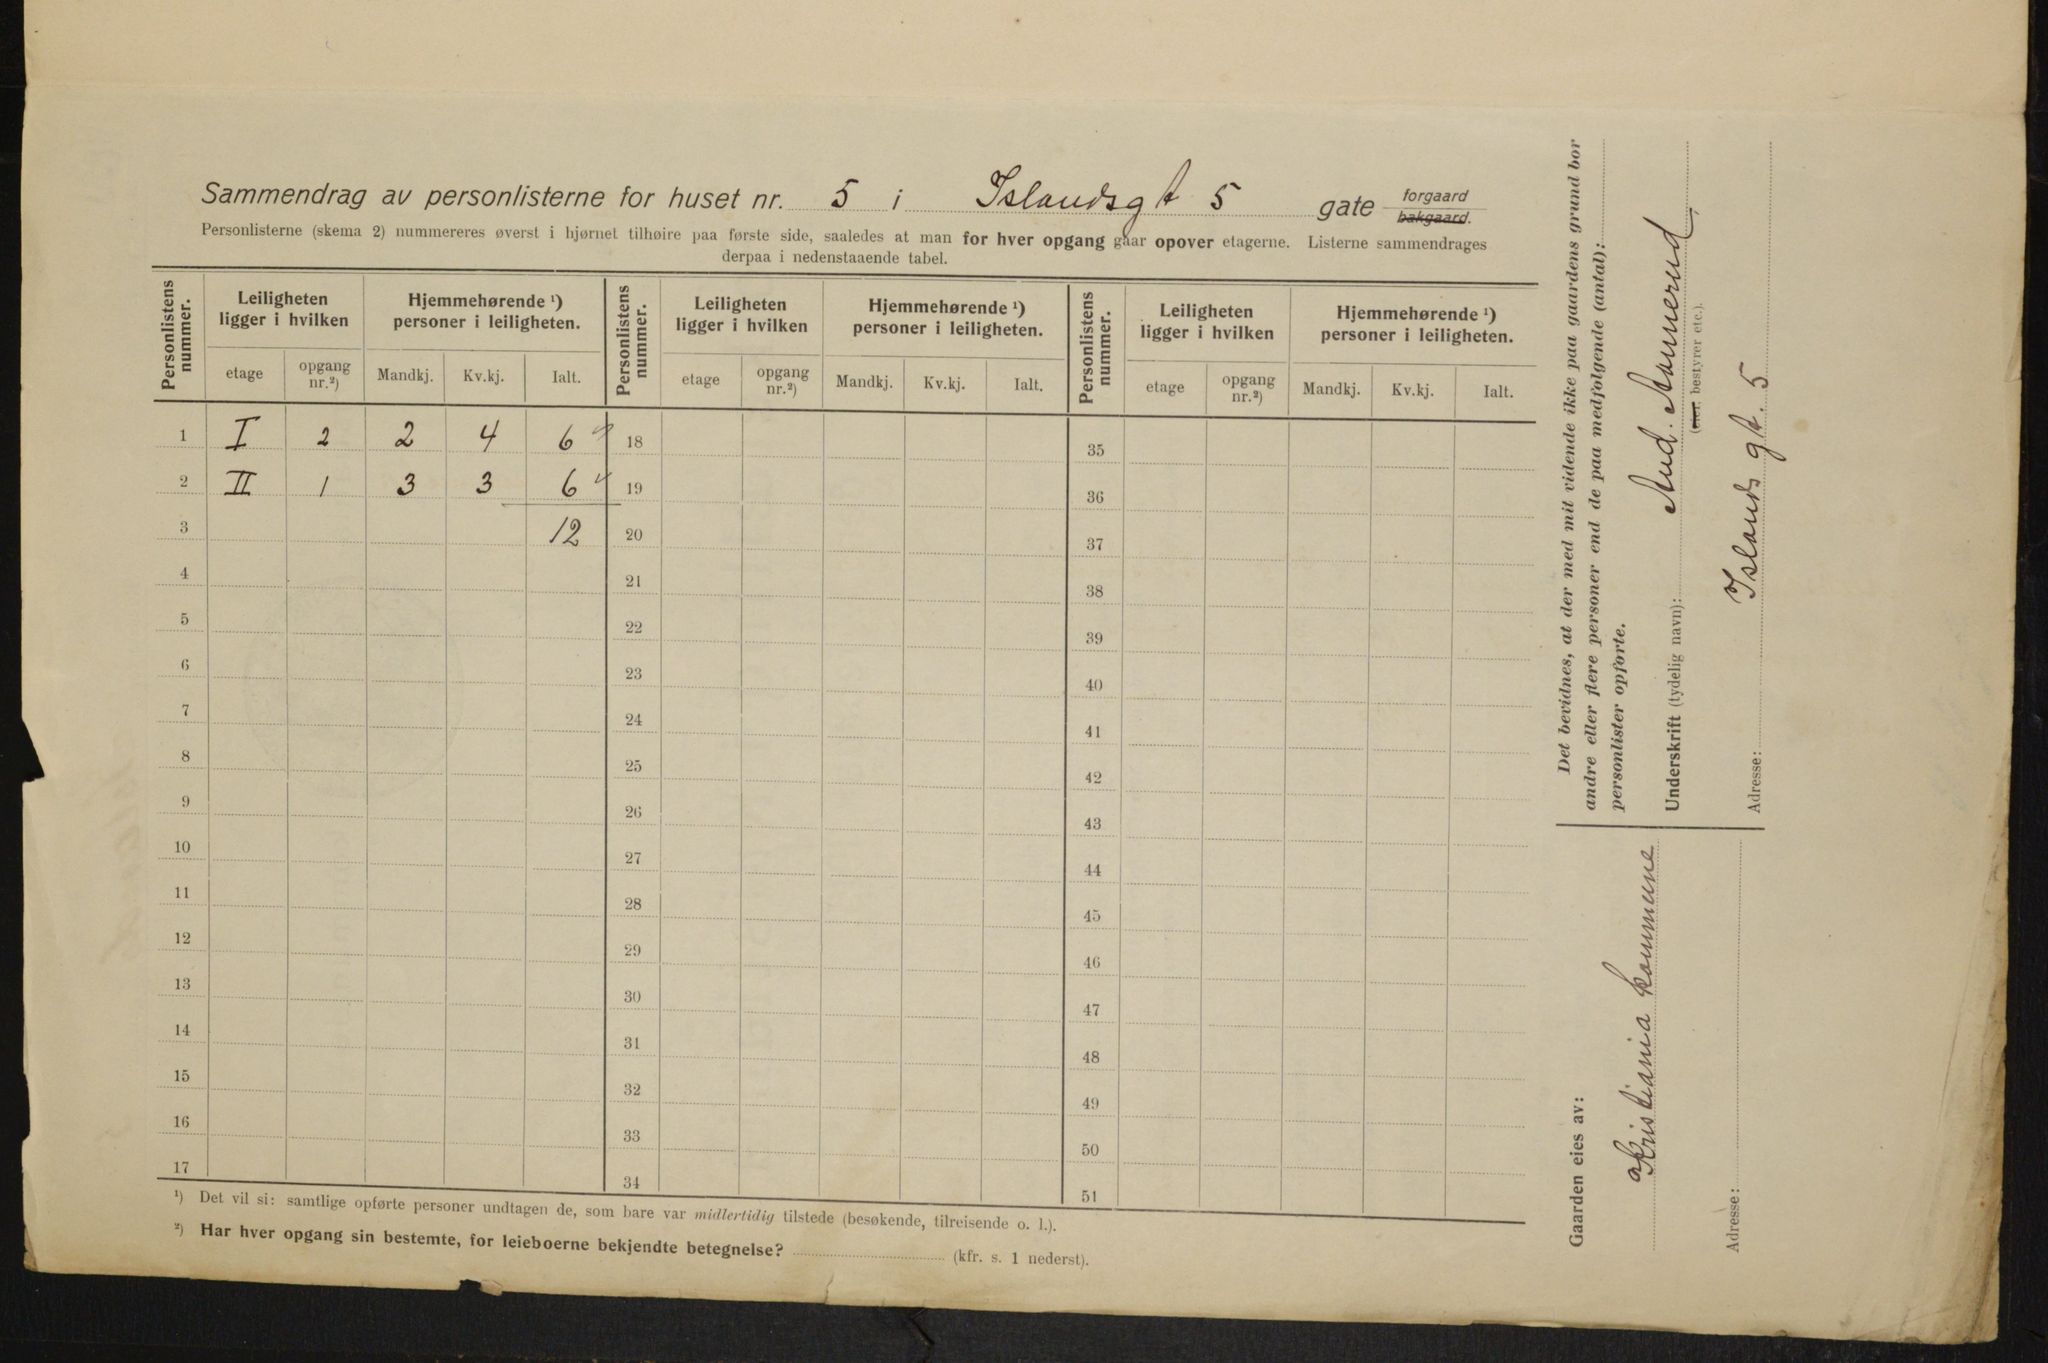 Sammendrag av personlisterne for huset nr. 5 i Islandsgt 5 gate forgaard bakgaard.
Personlisterne (skema 2) nummereres øverst i hjørnet tilhøire paa første side, saaledes at man for hver opgang gaar opover etagerne. Listerne sammendrages
derpaa i nedenstaaende tabel.
Personlistens nummer. Leiligheten ligger i hvilken Hjemmehørende ¹) personer i leiligheten. Personlistens nummer. Leiligheten ligger i hvilken Hjemmehørende ¹) personer i leiligheten. Personlistens nummer. Leiligheten ligger i hvilken Hjemmehørende ¹) personer i leiligheten.
etage opgang nr.²) Mandkj. Kv.kj. Ialt. etage opgang nr.²) Mandkj. Kv.kj. Ialt. etage opgang nr.²) Mandkj. Kv.kj. Ialt.
1 I 2 2 4 6 18 35
2 II 1 3 3 6 19 36
3 12 20 37
4 21 38
5 22 39
6 23 40
7 24 41
8 25 42
9 26 43
10 27 44
11 28 45
12 29 46
13 30 47
14 31 48
15 32 49
16 33 50
17 34 51
¹) Det vil si: samtlige opførte personer undtagen de, som bare var midlertidig tilstede (besøkende, tilreisende o. l.).
²) Har hver opgang sin bestemte, for leieboerne bekjendte betegnelse? (kfr. s. 1 nederst).
Det bevidnes, at der med mit vidende ikke paa gaardens grund bor
andre eller flere personer end de paa medfølgende (antal):
personlister opførte.
Underskrift (tydelig navn): And. Aamerud
(eier, bestyrer etc.).
Adresse: Islands gt. 5
Gaarden eies av:
Kristiania kommune
Adresse: